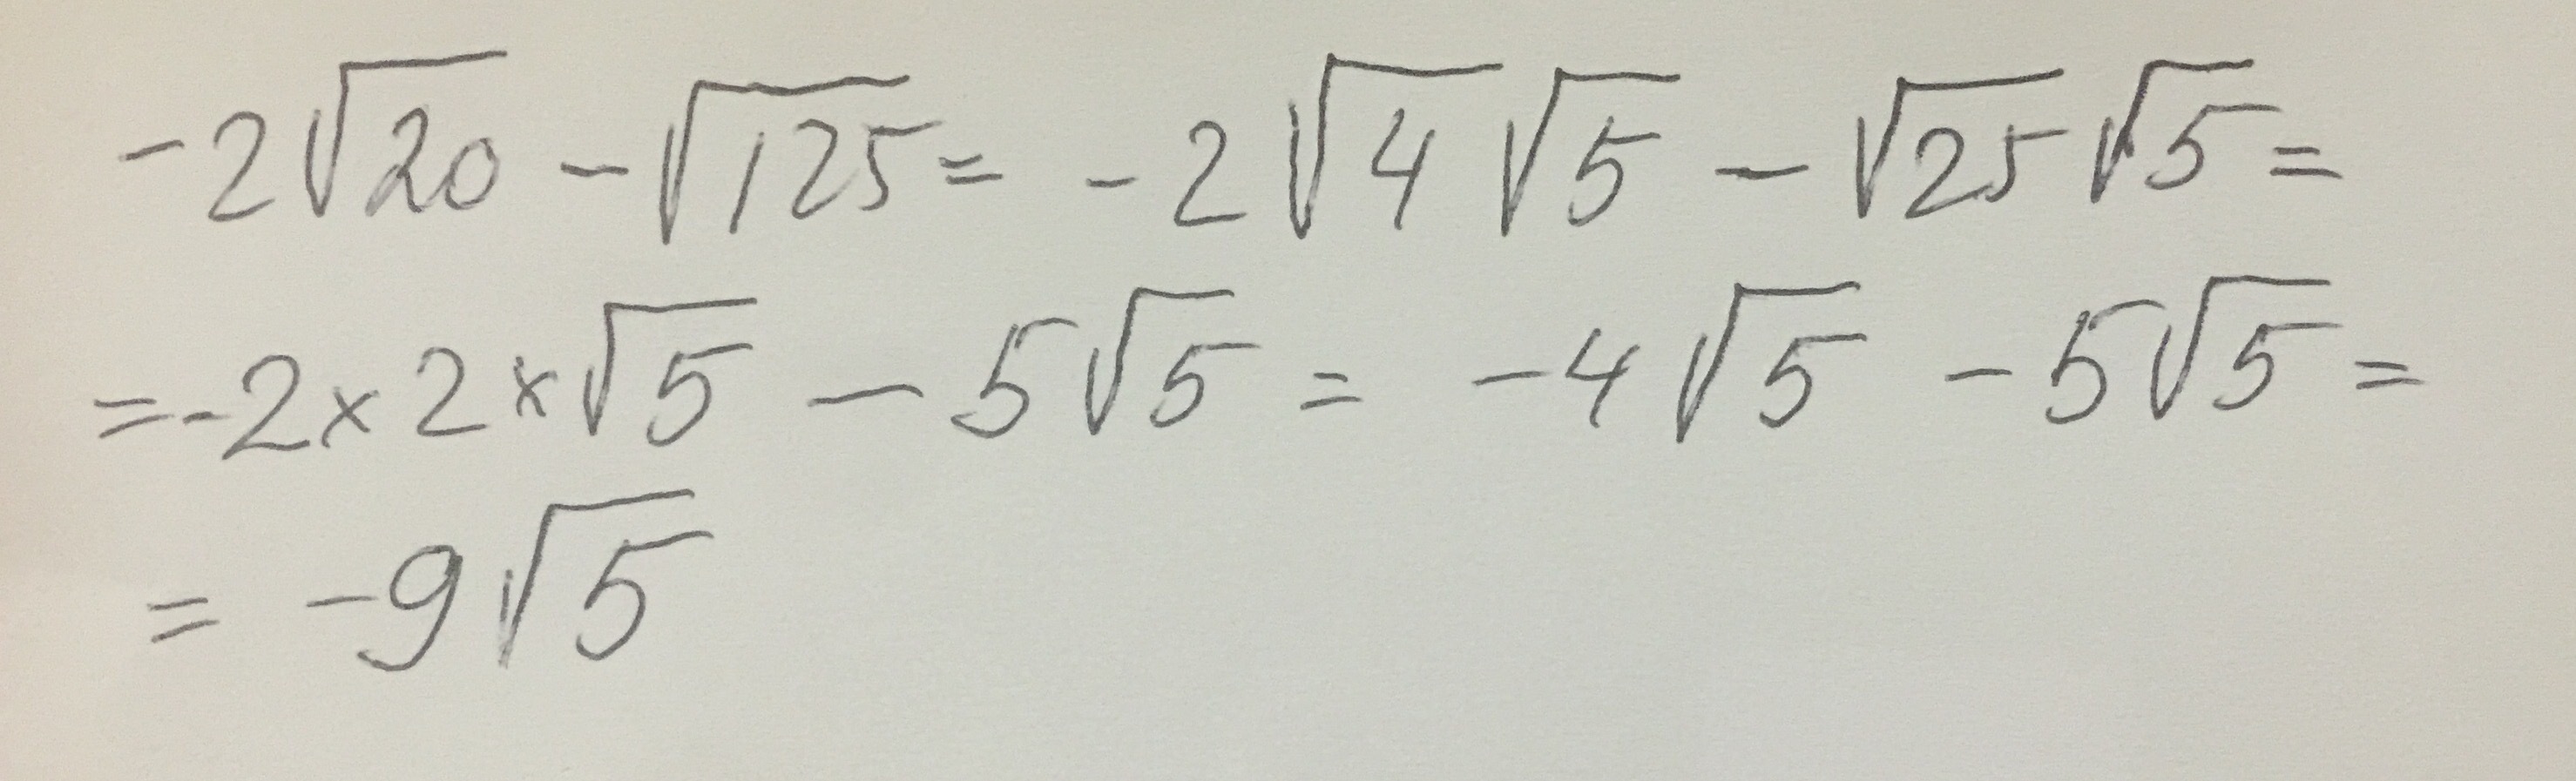 -2√20 - √125 = -2√4 √5 - √25 √5 =
= -2 × 2 × √5 - 5√5 = -4√5 - 5√5 =
= -9√5